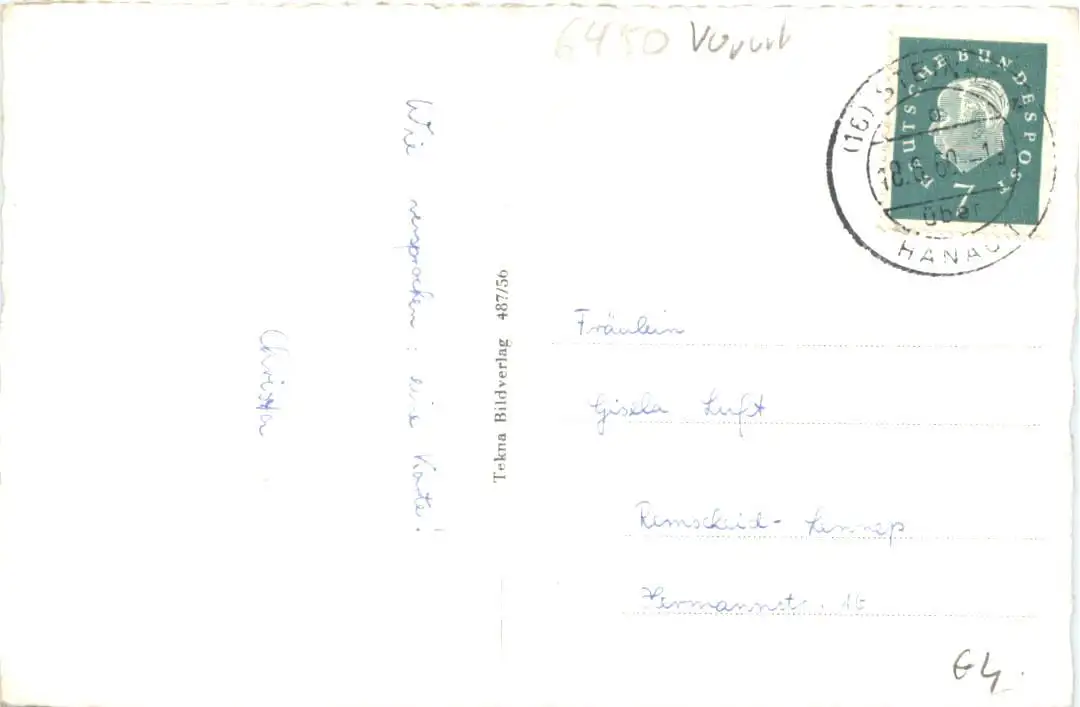 6450
DEUTSCHE BUNDESPOST
7
(16)
über
HANAU
Wie versprochen: eine Karte!
Christa
Tekna Bildverlag 487/56
Fräulein
Gisela Luft
Remscheid-Lennep
Hermannstr. 16